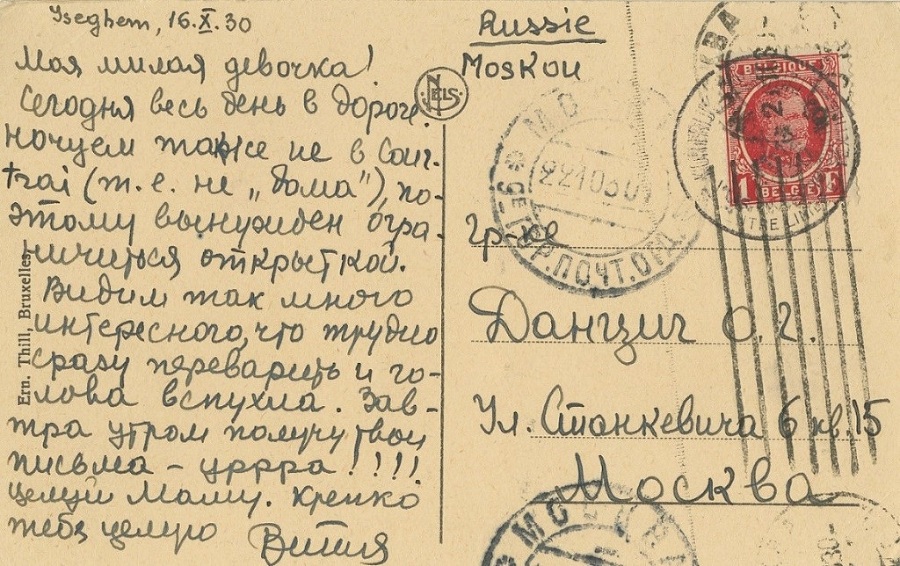 Iseghem, 16.X.30
Моя милая девочка!
Сегодня весь день в дороге,
ночуем также не в Cour-
trai (т.е. не „дома"), по-
этому вынужден огра-
ничиться открыткой.
Видим так много
интересного, что трудно
сразу переварить и го-
лова вспухла. Зав-
тра утром получу твои
письма – уррра!!!!
Целуй Маму. Крепко
тебя целую
Витя
NELS
Ern. Thill, Bruxelles
Russie
Moskou
Гр-ке
Данциг О.Г.
Ул. Станкевича 6 кв. 15
Москва
BELGIQUE
1 BELGIË
МОС
ГОР.ПОЧТ.ОТД.
МОСКВА